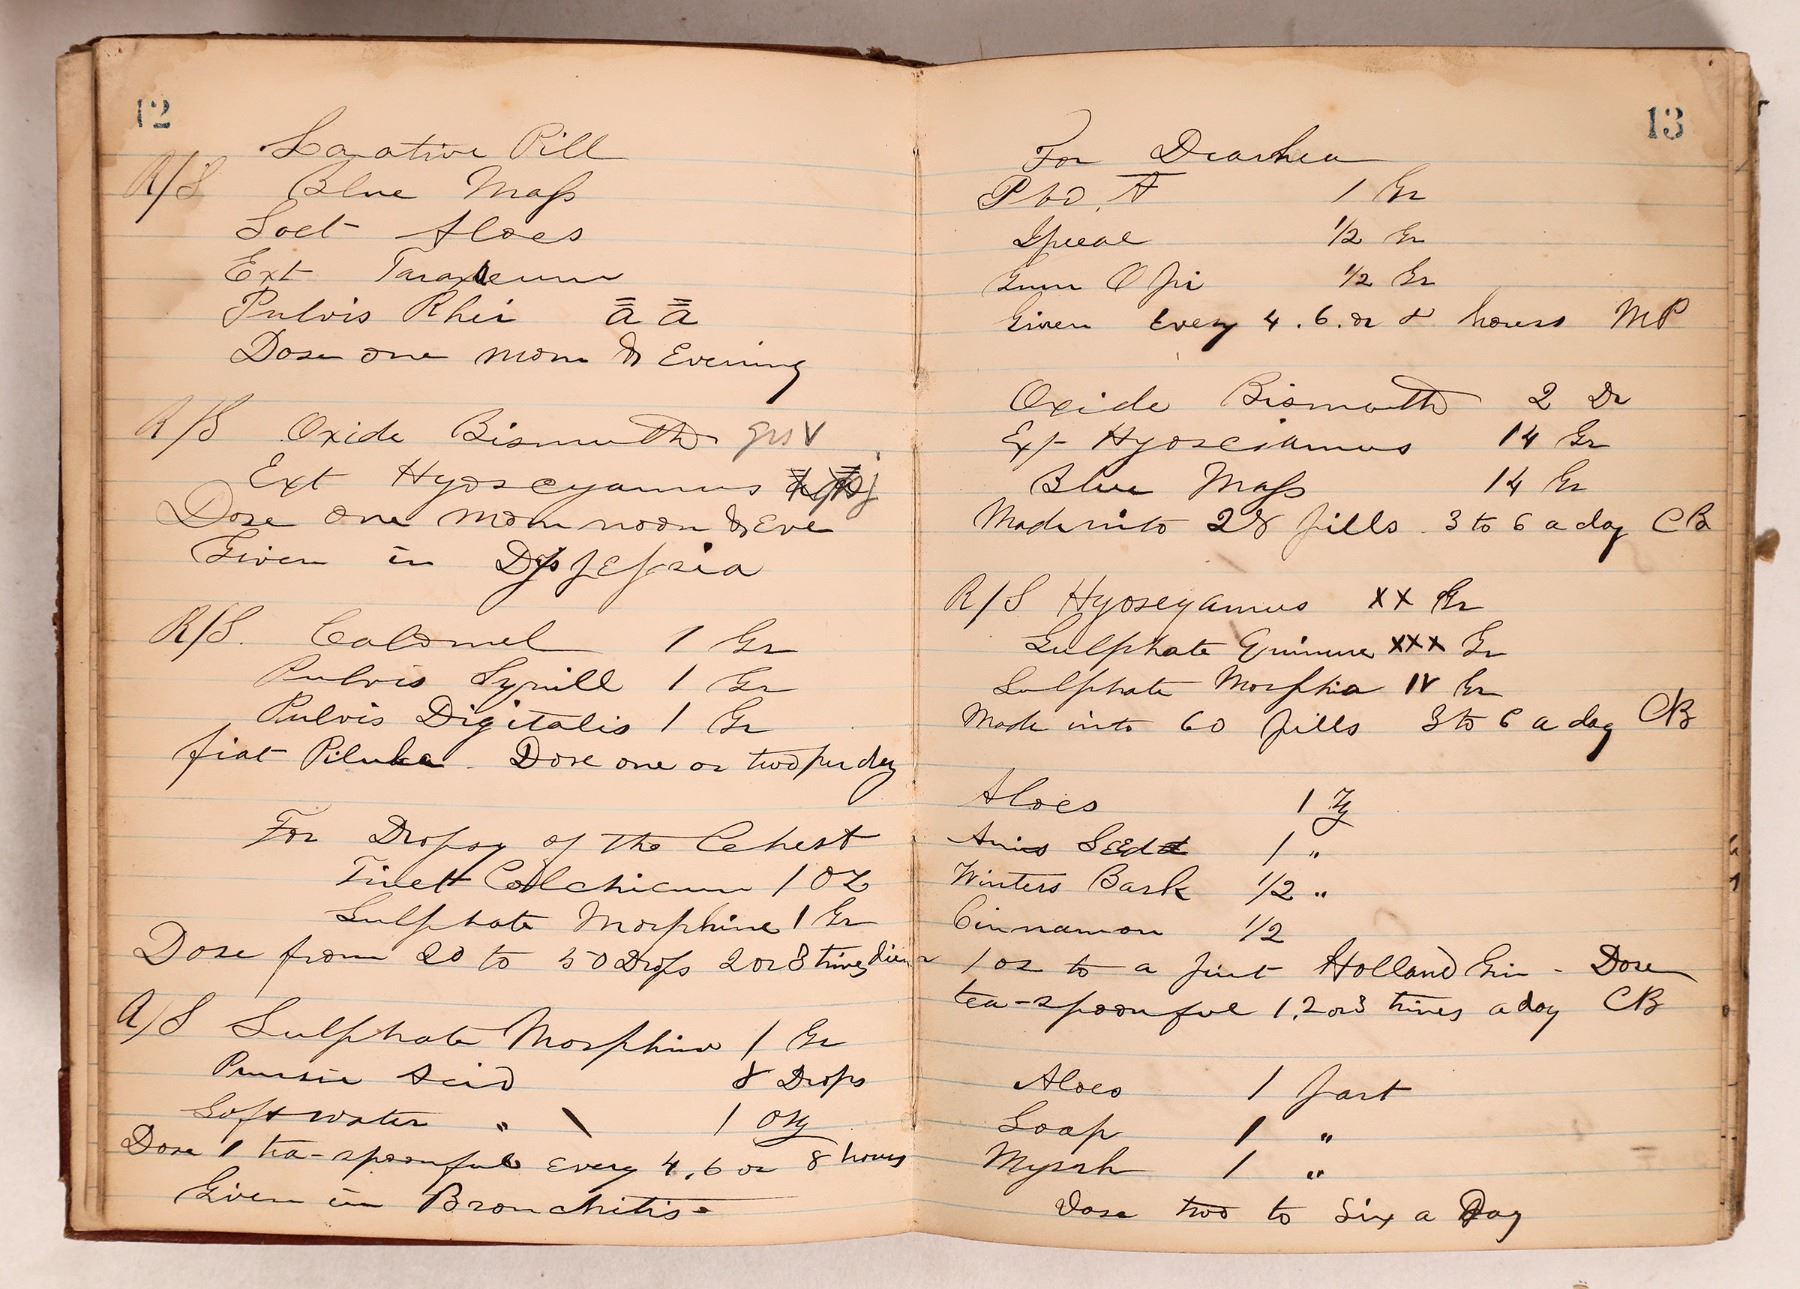 12
Laxative Pill
R/S Blue Mass
Soct Aloes
Ext Taraxicum
Pulvis Rhei a a
Dose one morn & Evening
R/S Oxide Bismuth grs V
Ext Hyosceyamus j
Dose one morn noon & Eve
Given in Dyspepsia
R/S. Calomel 1 Gr
Pulvis Sqnill 1 Gr
Pulvis Digitalis 1 Gr
fiat Pilula. Dose one or two per day
For Dropsy of the Cehest
Tinct Colchicum 1 OZ
Sulphate Morphine 1 Gr
Dose from 20 to 50 Drops 2 or 3 times
R/S Sulphate Morphine 1 Gr
Prussic Acid 8 Drops
Soft water " 1 OZ
Dose 1 tea-spoonful every 4, 6 or 8 hours
Given in Bronchitis -
13
For Diarhea
Pbo. A 1 Gr
Ipecac 1/2 Gr
Gum Opi 1/2 Gr
Given every 4. 6. or 8 hours MP
Oxide Bismuth 2 Dr
Ext Hyosciamus 14 Gr
Blue Mass 14 Gr
Made into 28 pills 3 to 6 a day CB
R/S Hyoseyamus XX Gr
Sulphate Quinine XXX Gr
Sulphate Morphia IV Gr
Made into 60 pills 3 to 6 a day CB
Aloes 1 Z
Anis Seed 1 "
Winters Bark 1/2 "
Cinnamon 1/2
1 oz to a pint Holland Gin - Dose
tea-spoonful 1, 2 or 3 times a day CB
Aloes 1 part
Soap 1 "
Myrrh 1 "
Dose two to Six a Day